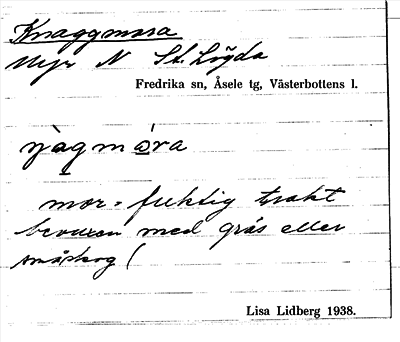 Knaggmora
Myr N St. Lögda
Fredrika sn, Åsele tg, Västerbottens l.
mor = fuktig trakt
bevuxen med gräs eller
småskog (
Lisa Lidberg 1938.